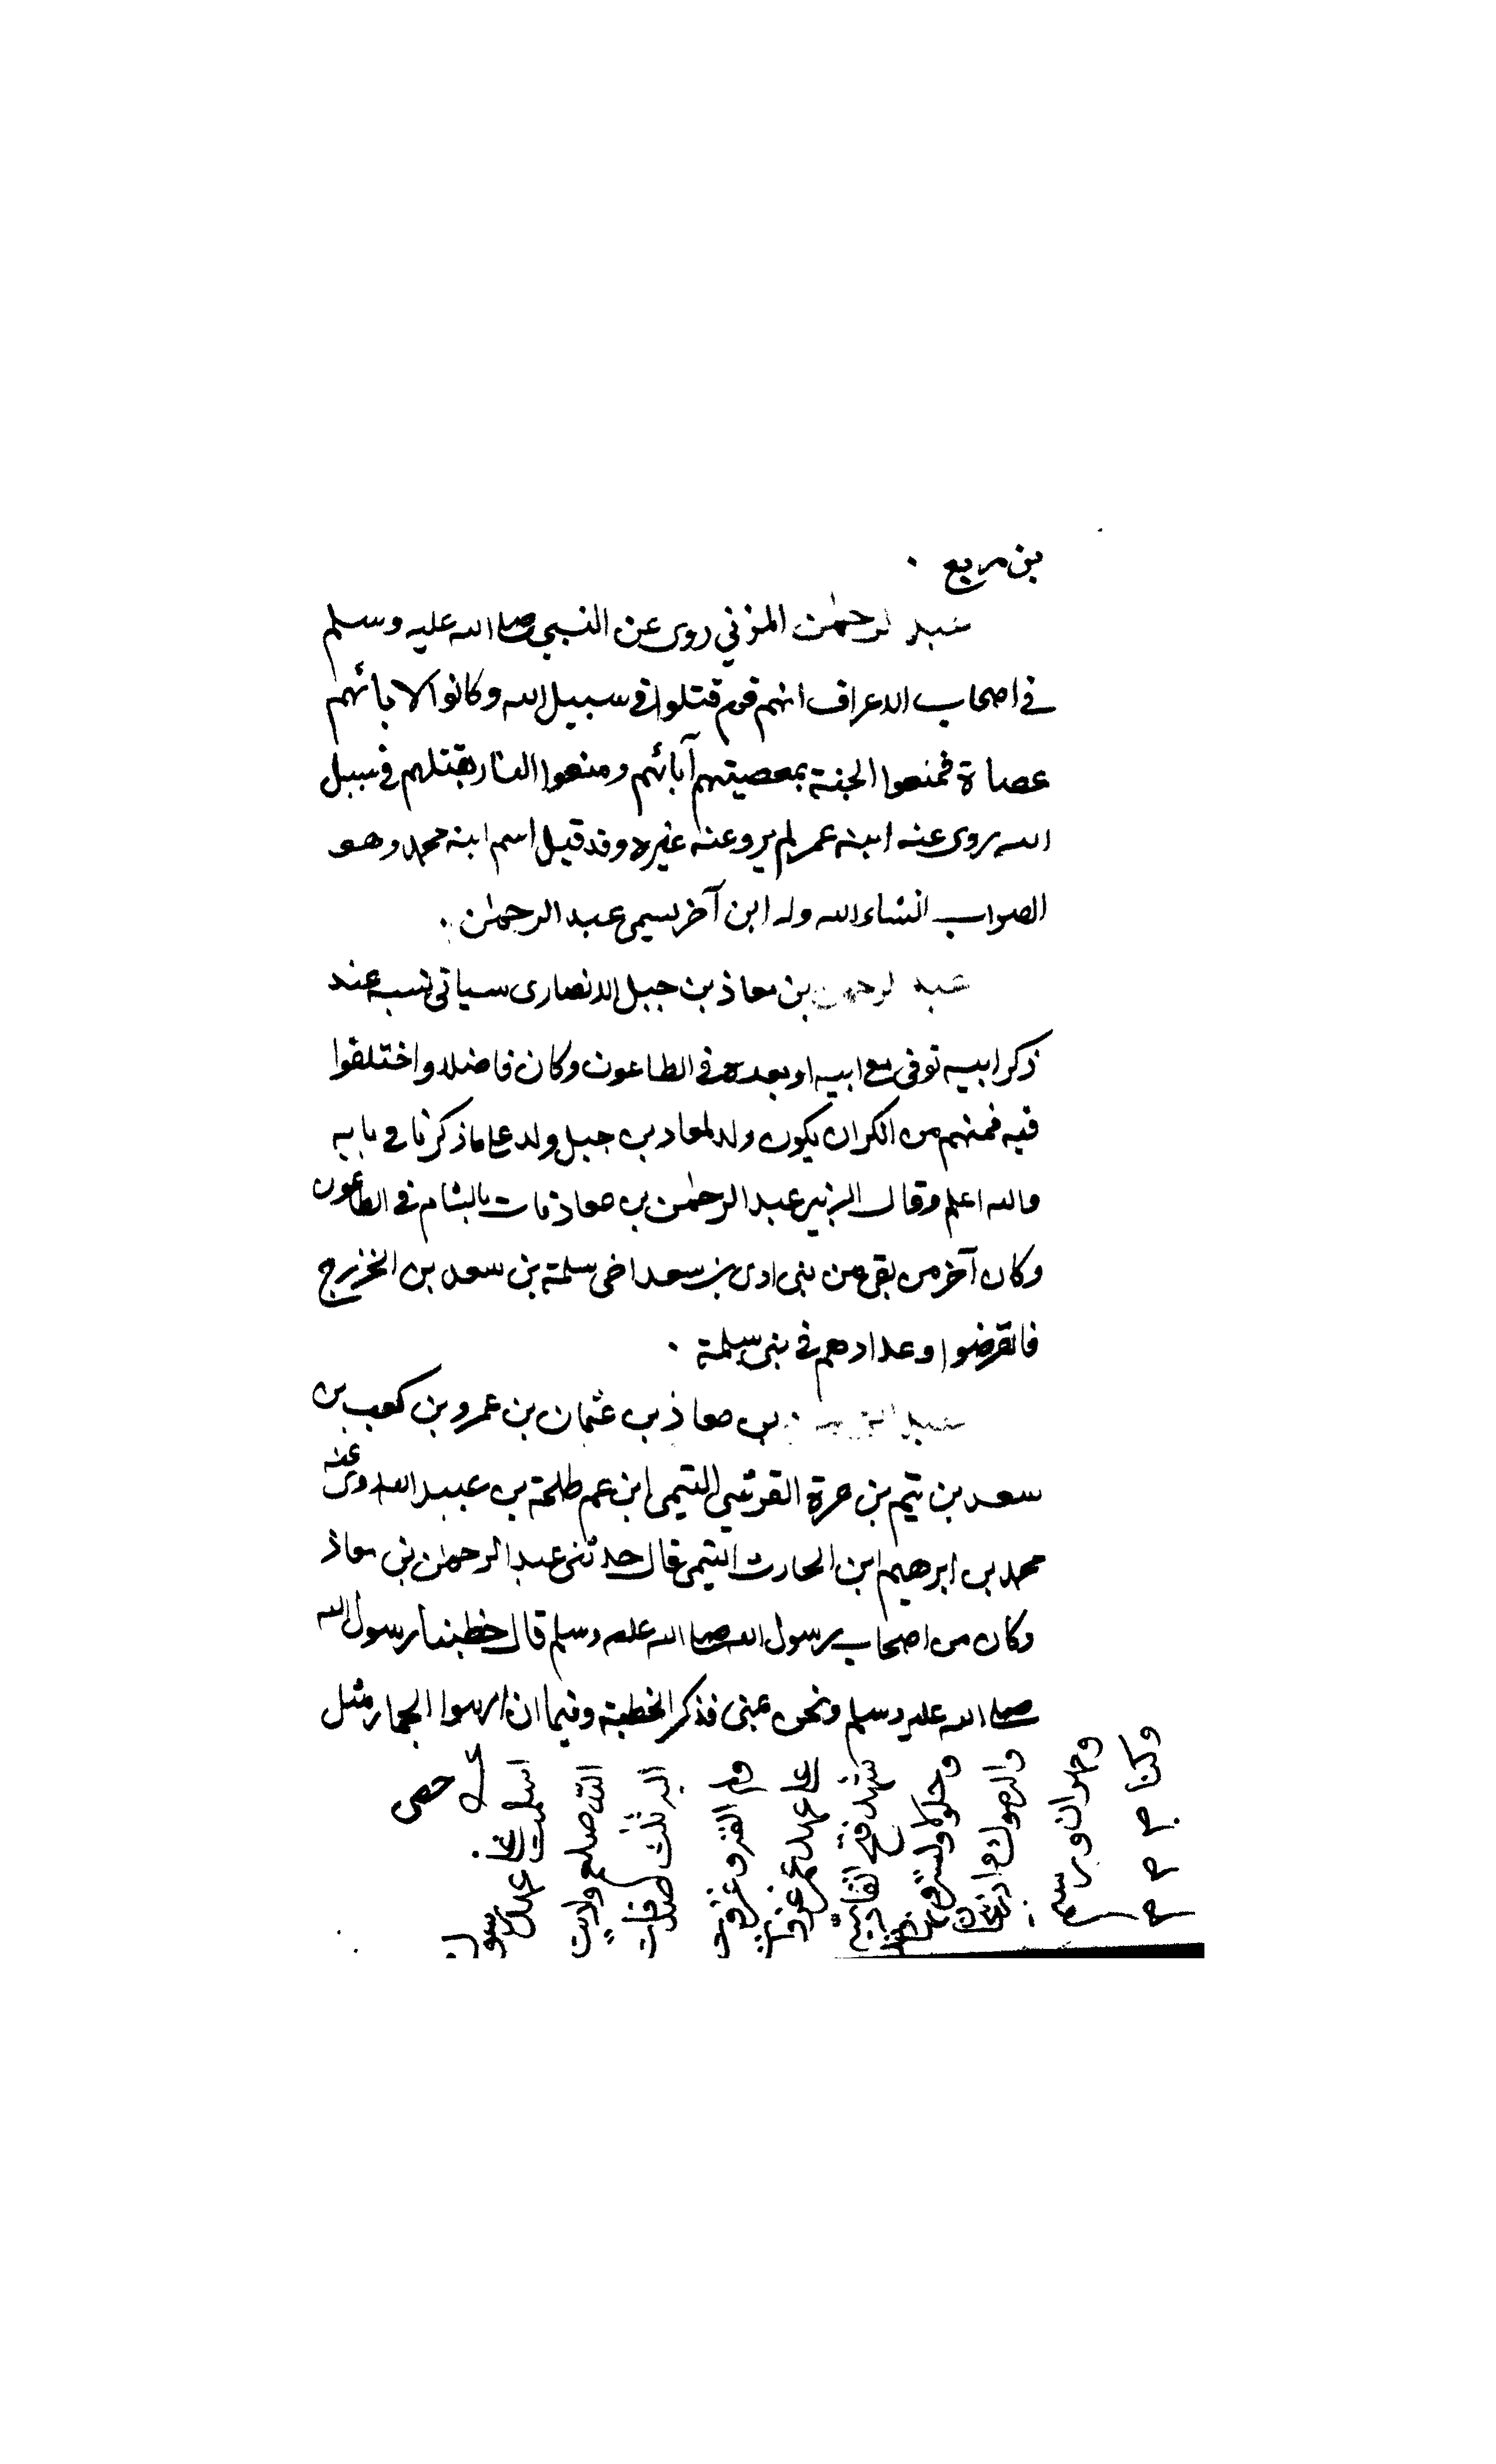 بن مربع .
عبد الرحمٰن المزني روى عن النبي صلى الله عليه وسلم
في اصحاب الاعراف انهم قوم قتلوا في سبيل الله وكانوا لابائهم
عصاة فمنعوا الجنة بمعصيتهم آبائهم ومنعوا النار بقتلهم في سبيل
الله روى عنه ابنه عمر لم يرو عنه غيره وقد قيل اسم ابنه محمد وهو
الصواب انشاء الله وله ابن آخر يسمى عبد الرحمٰن .
عبد الرحمن بن معاذ بن جبل الانصارى سياتى نسبه عند
ذكر ابيه توفى مع ابيه او بعده في الطاعون وكان فاضلا واختلفوا
فيه فمنهم من انكر ان يكون ولد لمعاذ بن جبل ولد على ما ذكرنا في بابه
والله اعلم وقال الزبير عبد الرحمٰن بن معاذ مات بالشام في الطاعون
وكان آخر من بقى من بنى ادى بن سعد اخى سلمة بن سعد بن الخزرج
فانقرضوا وعدادهم في بنى سلمة .
عبد الرحمن بن معاذ بن عثمان بن عمرو بن كعب بن
سعد بن تيم بن مرة القرشي التيمى ابن عم طلحة بن عبيد الله روى عنه
محمد بن ابرهيم ابن الحارث التيمى قال حدثنى عبد الرحمٰن بن معاذ
وكان من اصحاب رسول الله صلى الله عليه وسلم قال خطبنا رسول الله
صلى الله عليه وسلم ونحن بمنى فذكر الخطبة وفيها ان ارموا الجمار مثل
حصى
اسلمت على عهد رسول
الله صلعم وادیت
اليه ثلث صدقات
ولم القه وغزوت
على عهد عمر غزوات
شهدت فتح القادسية
وجلولا وتستر ونهاوند
واليرموك واذربيجان
ومهران ورستم
وكنا